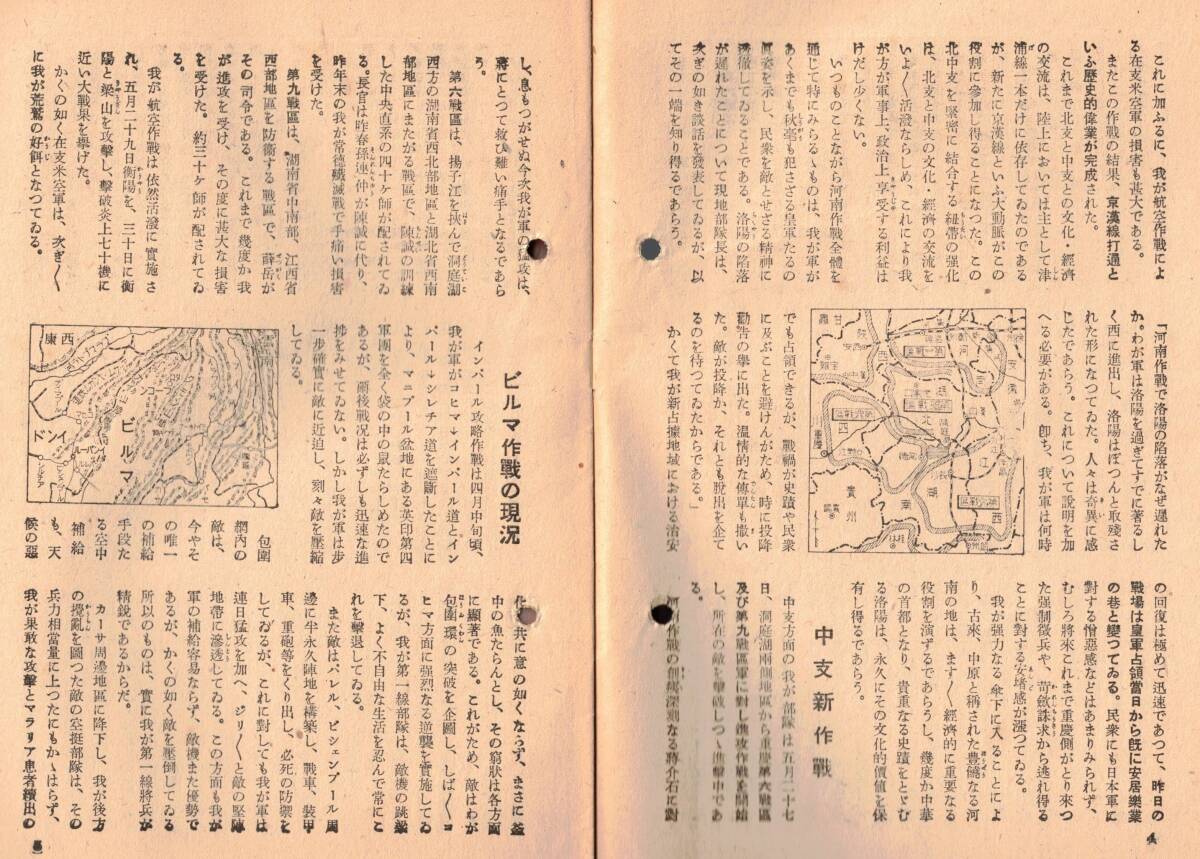 これに加ふるに、我が航空作戰によ
る在支米空軍の損害も甚大である。
またこの作戰の結果、京漢線打通と
いふ歷史的偉業が完成された。
これまで北支と中支との文化・經濟
の交流は、陸上においては主として津
浦線一本だけに依存してゐたのである
が、新たに京漢線といふ大動脈がこの
役割に參加し得ることになつた。この
北中支を緊密に結合する紐帶の强化
は、北支と中支の文化・經濟の交流を
いよ〱活潑ならしめ、これにより我
が方が軍事上、政治上享受する利益は
けだし少くない。
いつものことながら河南作戰全體を
通じて特にみらるゝものは、我が軍が
あくまでも秋毫も犯さざる皇軍たるの
眞姿を示し、民衆を敵とせざる精神に
透徹してゐることである。洛陽の陷落
が遲れたことについて現地部隊長は、
次ぎの如き談話を發表してゐるが、以
てその一端を知り得るであらう。
「河南作戰で洛陽の陷落がなぜ遲れた
か。わが軍は洛陽を過ぎてすでに著るし
く西に進出し、洛陽はぽつんと取殘さ
れた形になつてゐた。人々は奇異に感
じたであらう。これについて說明を加
へる必要がある。卽ち、我が軍は何時
でも占領できるが、戰禍が史蹟や民衆
に及ぶことを避けんがため、時に投降
勸告の擧に出た。溫情的な傳單も撒い
た。敵が投降か、それとも脫出を企て
るのを待つてゐたからである。」
かくて我が新占據地域における治安
の回復は極めて迅速であつて、昨日の
戰場は皇軍占領當日から旣に安居樂業
の巷と變つてゐる。民衆にも日本軍に
對する憎惡感などはあまりみられず、
むしろ將來これまで重慶側がとり來つ
た强制徵兵や、苛斂誅求から逃れ得る
ことに對する安堵感が漲つてゐる。
我が强力なる傘下に入ることによ
り、古來、中原と稱された豐饒なる河
南の地は、ます〱經濟的に重要なる
役割を演ずるであらうし、幾度か中華
の首都となり、貴重なる史蹟をとどむ
る洛陽は、永久にその文化的價値を保
有し得るであらう。
中支新作戰
中支方面の我が部隊は五月二十七
日、洞庭湖兩側地區から重慶第六戰區
及び第九戰區軍に對し進攻作戰を開始
し、所在の敵を擊破しつゝ進擊中であ
る。
河南作戰の創痍深刻なる蔣介石に對
4
し、息もつがせぬ今次我が軍の猛攻は、
蔣にとつて救ひ難い痛手となるであら
う。
第六戰區は、揚子江を挾んで洞庭湖
西方の湖南省西北部地區と湖北省西南
部地區にまたがる戰區で、陳誠の訓練
した中央直系の四十ケ師が配されてゐ
る。長官は昨春孫連仲が陳誠に代り、
昨年末の我が常德殲滅戰で手痛い損害
を受けた。
第九戰區は、湖南省中南部、江西省
西部地區を防衞する戰區で、薛岳が
その司令である。これまで幾度か我
が進攻を受け、その度に甚大な損害
を受けた。約三十ケ師が配されてゐ
る。
我が航空作戰は依然活潑に實施さ
れ、五月二十九日衡陽を、三十日に衡
陽と梁山を攻擊し、擊破炎上七十機に
近い大戰果を擧げた。
かくの如く在支米空軍は、次ぎ〱
に我が荒鷲の好餌となつてゐる。
ビルマ作戰の現況
インパール攻略作戰は四月中旬頃、
我が軍がコヒマ↓インパール道とイン
パール↓シレチア道を遮斷したことに
より、マニプール盆地にある英印第四
軍團を全く袋の中の鼠たらしめたので
あるが、爾後戰況は必ずしも迅速な進
捗をみせてゐない。しかし我が軍は步
一步確實に敵に近迫し、刻々敵を壓縮
してゐる。
西康
雲南
ビルマ
インド
包圍
網內の
敵は、
今やそ
の唯一
の補給
手段た
る空中
補給
も、天
候の惡
化と共に意の如くならず、まさに釜
中の魚たらんとし、その窮狀は各方面
に顯著である。これがため、敵はわが
包圍環の突破を企圖し、しば〱コ
ヒマ方面に强烈なる逆襲を實施してゐ
るが、我が第一線部隊は、敵機の跳梁
下、よく不自由な生活を忍んで常にこ
れを擊退してゐる。
また敵はパレル、ビシェンプール周
邊に半永久陣地を構築し、戰車、裝甲
車、重砲等をくり出し、必死の防禦を
してゐるが、これに對しても我が軍は
連日猛攻を加へ、ジリ〱と敵の堅陣
地帶に滲透してゐる。この方面も我が
軍の補給容易ならず、敵機また優勢で
あるが、かくの如く敵を壓倒してゐる
所以のものは、實に我が第一線將兵が
精銳であるからだ。
カーサ周邊地區に降下し、我が後方
の攪亂を圖つた敵の空挺部隊は、その
兵力相當量に上つたにもかゝはらず、
我が果敢な攻擊とマラリア患者續出の
5